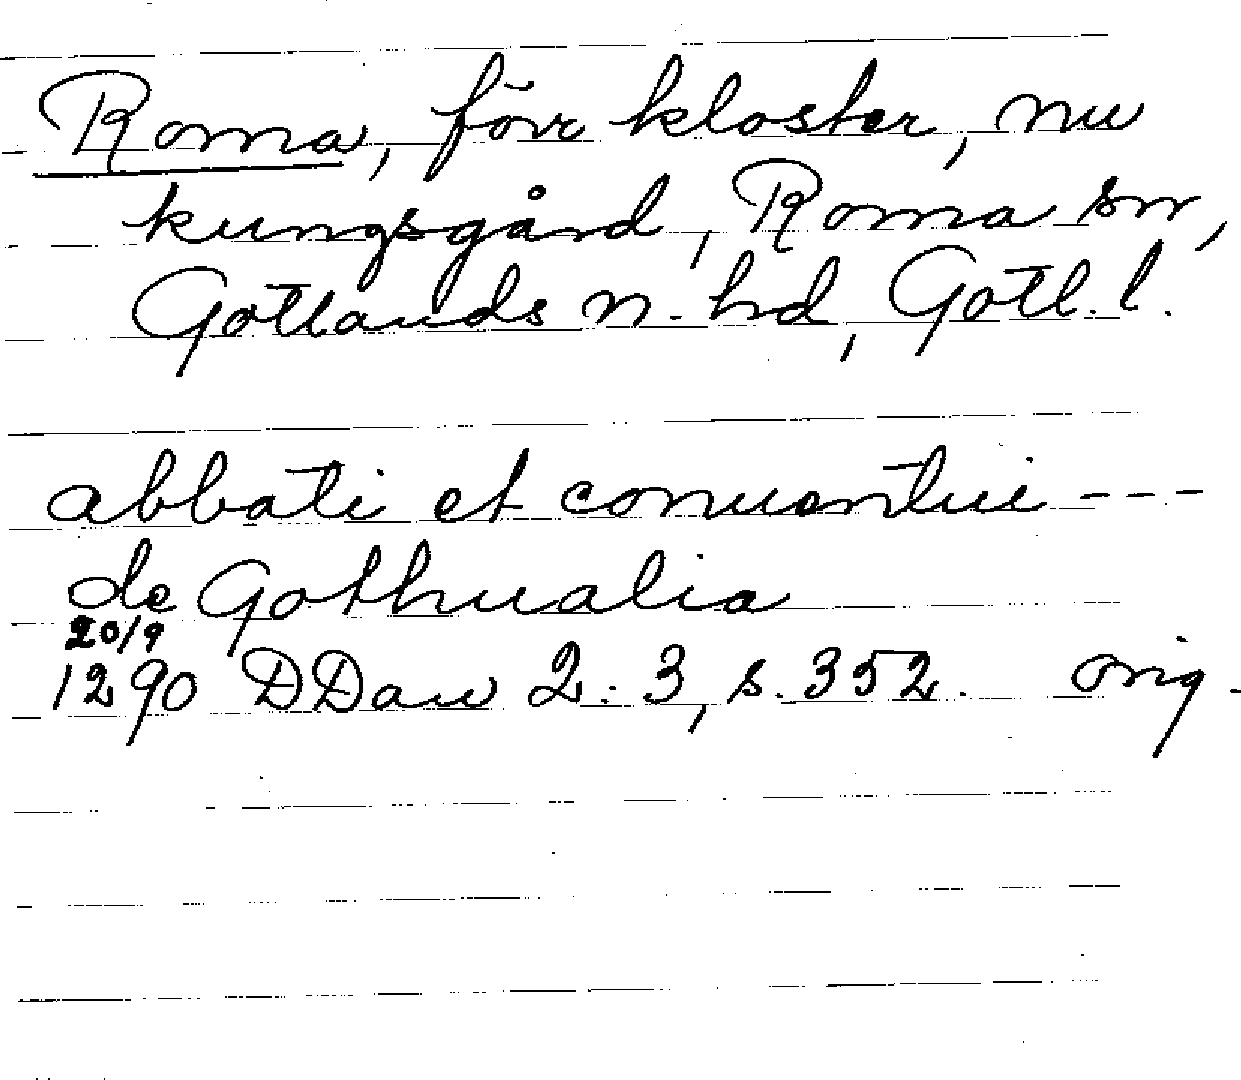 Roma, förr kloster, nu
kungsgård, Roma sn,
Gotlands n. hd, Gotl. l.
abbati et conuentui ---
de Gothualia
20/9
1290 DDan 2:3, s. 352. orig.